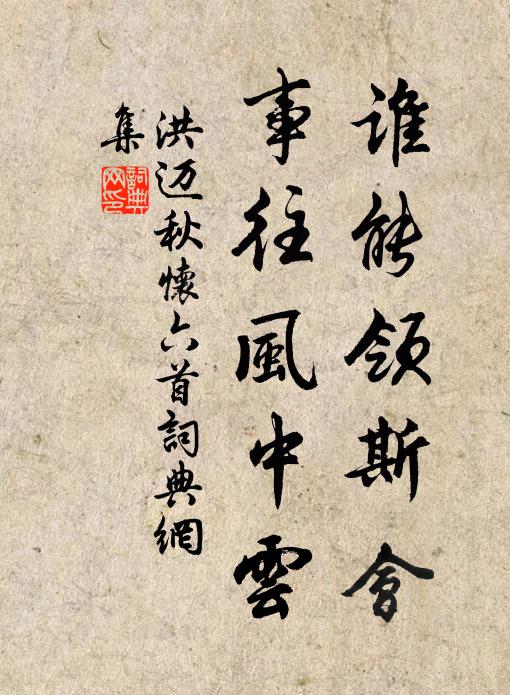 誰能領斯會
事往風中雲
洪迈秋懷六首詞典網
集
詞典網印